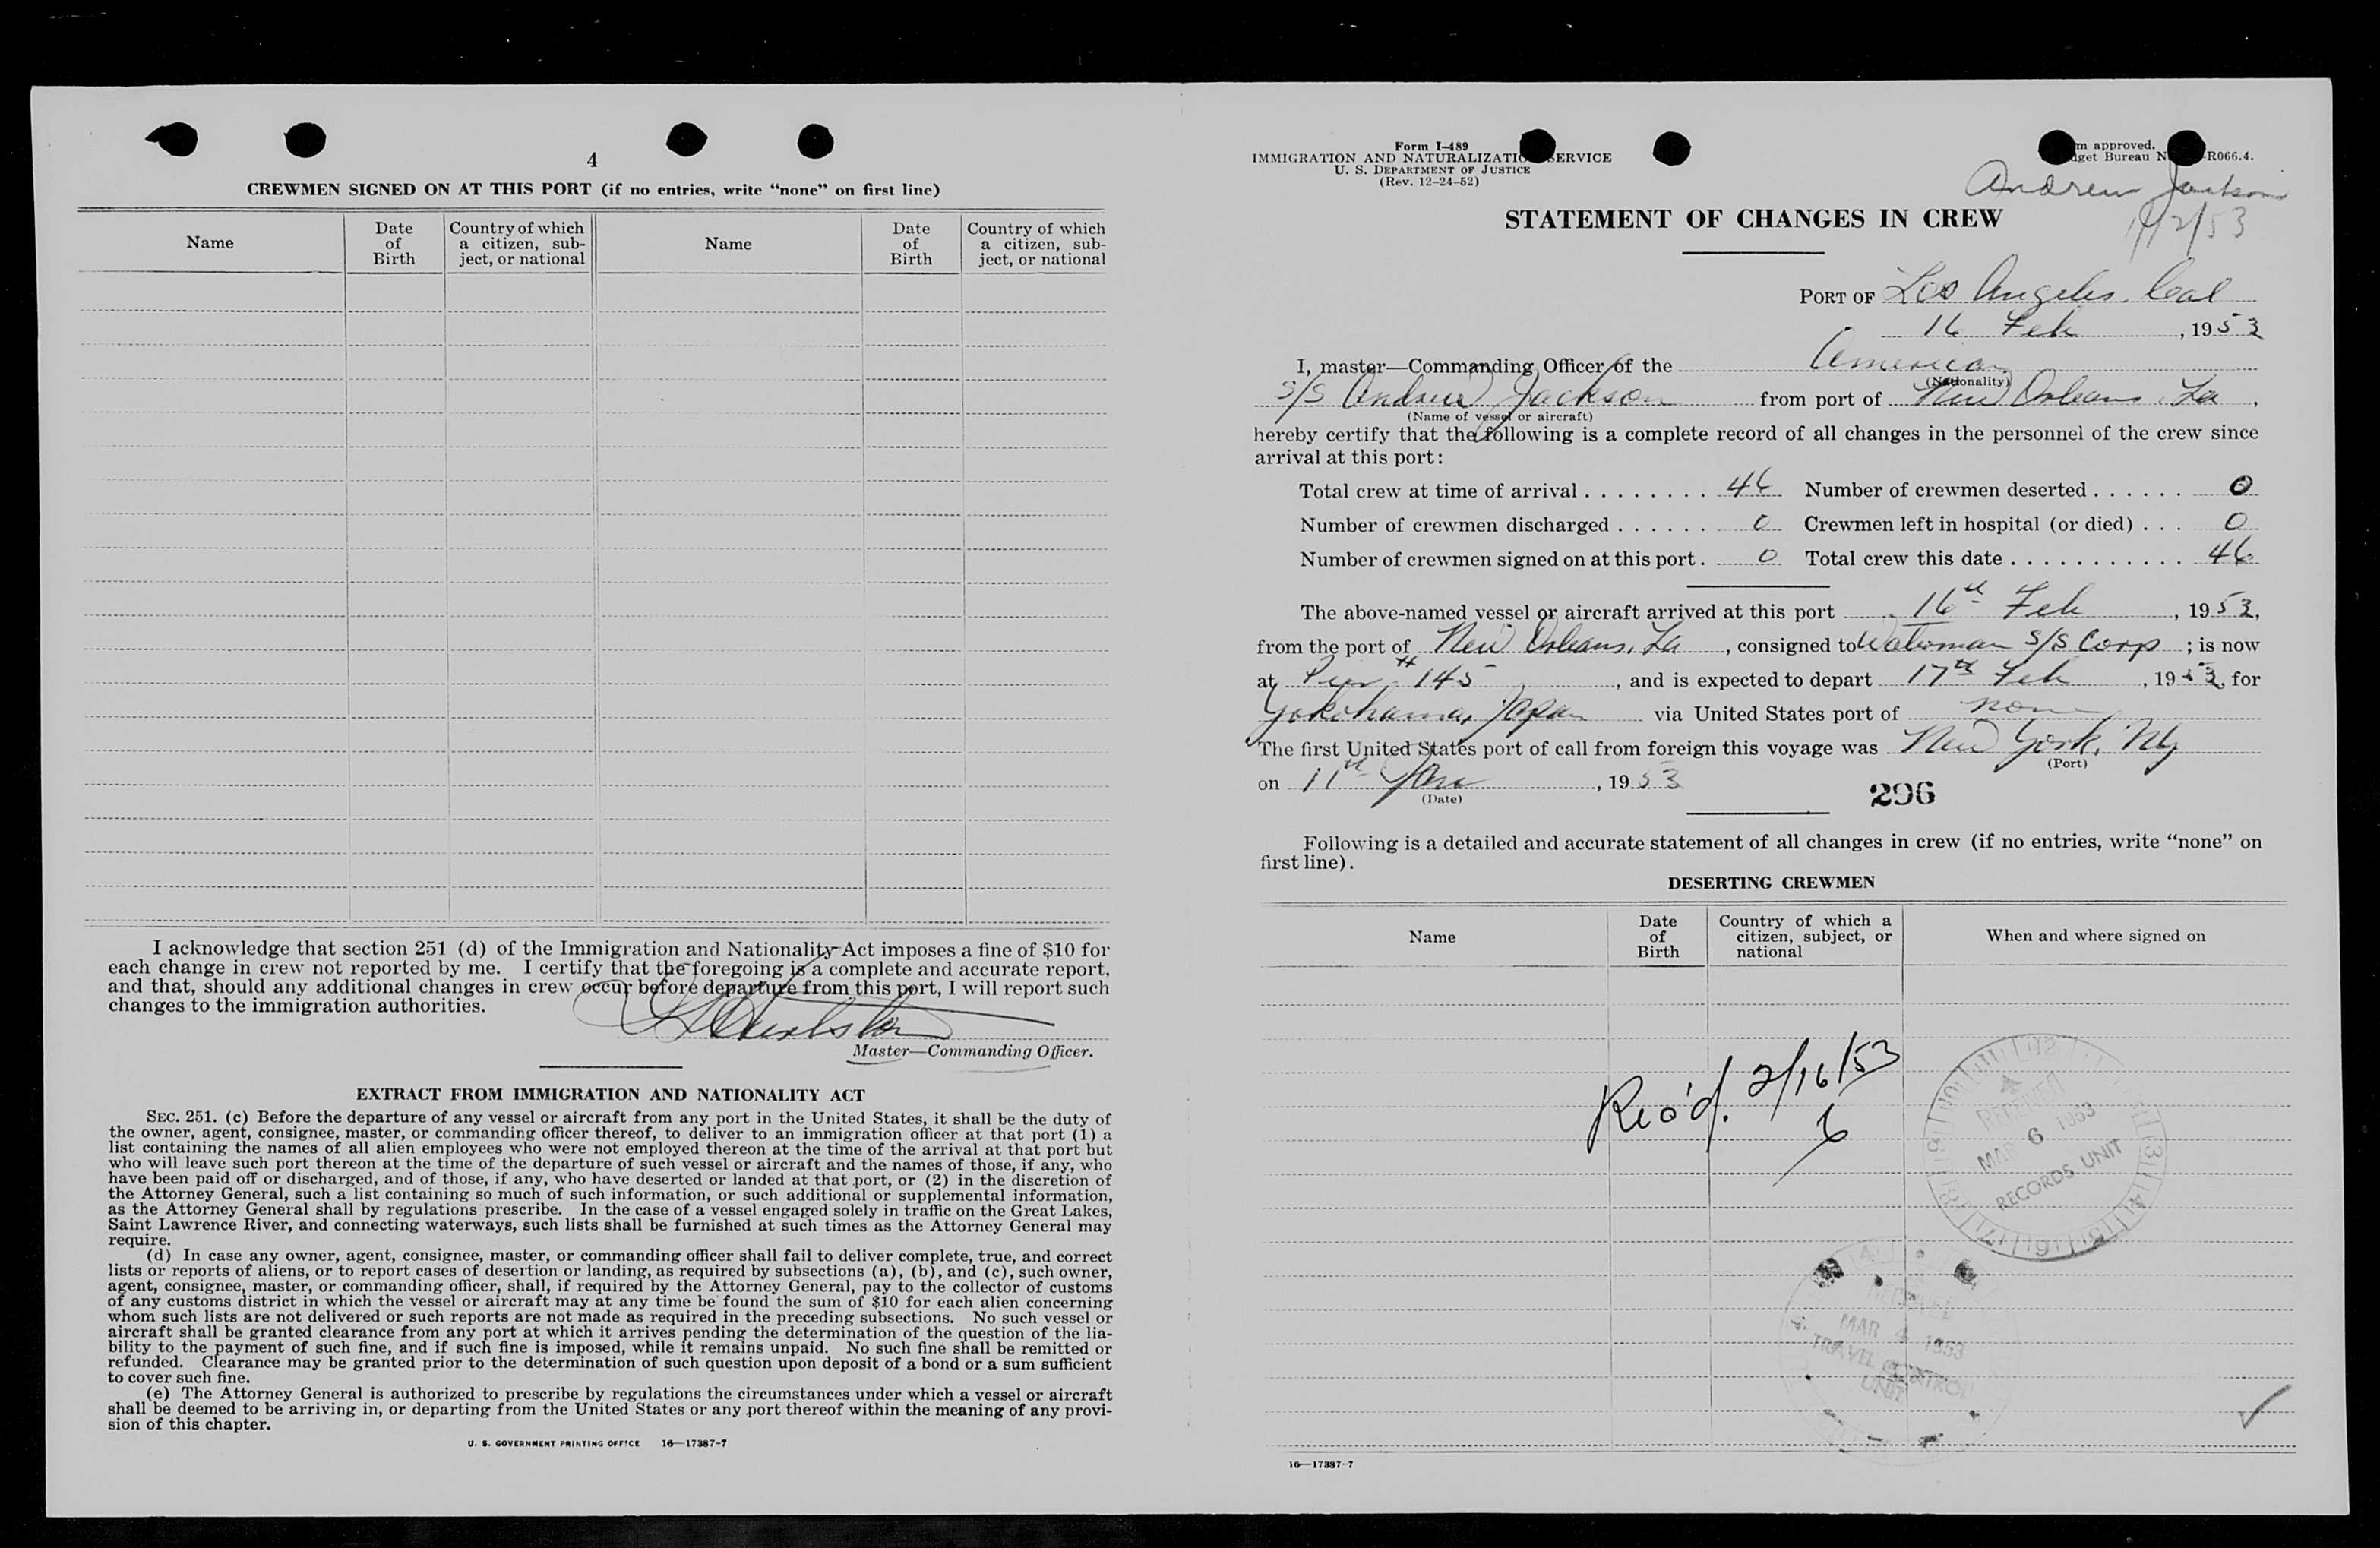 4
CREWMEN SIGNED ON AT THIS PORT (if no entries, write “none” on first line)
Name
Date of Birth
Country of which a citizen, subject, or national
Name
Date of Birth
Country of which a citizen, subject, or national
I acknowledge that section 251 (d) of the Immigration and Nationality Act imposes a fine of $10 for
each change in crew not reported by me. I certify that the foregoing is a complete and accurate report,
and that, should any additional changes in crew occur before departure from this port, I will report such
changes to the immigration authorities.
Master—Commanding Officer.
EXTRACT FROM IMMIGRATION AND NATIONALITY ACT
SEC. 251. (c) Before the departure of any vessel or aircraft from any port in the United States, it shall be the duty of
the owner, agent, consignee, master, or commanding officer thereof, to deliver to an immigration officer at that port (1) a
list containing the names of all alien employees who were not employed thereon at the time of the arrival at that port but
who will leave such port thereon at the time of the departure of such vessel or aircraft and the names of those, if any, who
have been paid off or discharged, and of those, if any, who have deserted or landed at that port, or (2) in the discretion of
the Attorney General, such a list containing so much of such information, or such additional or supplemental information,
as the Attorney General shall by regulations prescribe. In the case of a vessel engaged solely in traffic on the Great Lakes,
Saint Lawrence River, and connecting waterways, such lists shall be furnished at such times as the Attorney General may
require.
(d) In case any owner, agent, consignee, master, or commanding officer shall fail to deliver complete, true, and correct
lists or reports of aliens, or to report cases of desertion or landing, as required by subsections (a), (b), and (c), such owner,
agent, consignee, master, or commanding officer, shall, if required by the Attorney General, pay to the collector of customs
of any customs district in which the vessel or aircraft may at any time be found the sum of $10 for each alien concerning
whom such lists are not delivered or such reports are not made as required in the preceding subsections. No such vessel or
aircraft shall be granted clearance from any port at which it arrives pending the determination of the question of the lia-
bility to the payment of such fine, and if such fine is imposed, while it remains unpaid. No such fine shall be remitted or
refunded. Clearance may be granted prior to the determination of such question upon deposit of a bond or a sum sufficient
to cover such fine.
(e) The Attorney General is authorized to prescribe by regulations the circumstances under which a vessel or aircraft
shall be deemed to be arriving in, or departing from the United States or any port thereof within the meaning of any provi-
sion of this chapter.
U. S. GOVERNMENT PRINTING OFFICE 16—17387-7
Form I-489
IMMIGRATION AND NATURALIZATIO SERVICE
U. S. DEPARTMENT OF JUSTICE
(Rev. 12-24-52)
m approved.
get Bureau N -R066.4.
Andrew Jackson
1/12/53
STATEMENT OF CHANGES IN CREW
PORT OF Los Angeles, Cal
16 Feb, 1953
I, master—Commanding Officer of the American
(Nationality)
S/S Andrew Jackson from port of New Orleans, La,
(Name of vessel or aircraft)
hereby certify that the following is a complete record of all changes in the personnel of the crew since
arrival at this port:
Total crew at time of arrival 46 Number of crewmen deserted 0
Number of crewmen discharged 0 Crewmen left in hospital (or died) 0
Number of crewmen signed on at this port. 0 Total crew this date 46
The above-named vessel or aircraft arrived at this port 16th Feb, 1953,
from the port of New Orleans, La, consigned to Waterman S/S Corp; is now
at Pier #145, and is expected to depart 17th Feb, 1953, for
Yokohama, Japan via United States port of none
The first United States port of call from foreign this voyage was New York, NY
(Port)
on 11th Jan, 1953
(Date)
296
Following is a detailed and accurate statement of all changes in crew (if no entries, write “none” on
first line).
DESERTING CREWMEN
Name
Date of Birth
Country of which a citizen, subject, or national
When and where signed on
Rec'd. 2/16/53
RECEIVED
MAR 6 1953
RECORDS UNIT
RECEIVED
MAR 4 1953
TRAVEL CONTROL
UNIT
16—17387-7